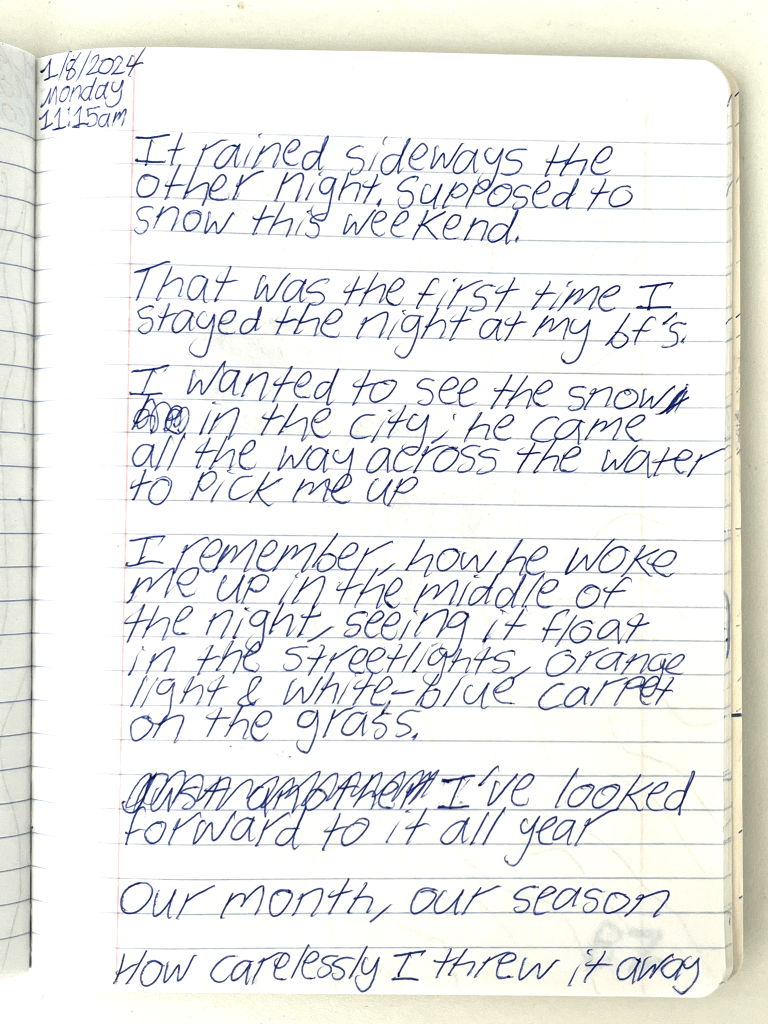 1/8/2024
monday
11:15am
It rained sideways the
other night. Supposed to
snow this weekend.
That was the first time I
stayed the night at my bf's.
I wanted to see the snow
in the city; he came
all the way across the water
to pick me up
I remember, how he woke
me up in the middle of
the night, seeing it float
in the streetlights, orange
light & white-blue carpet
on the grass.
I've looked
forward to it all year
Our month, our season
How carelessly I threw it away